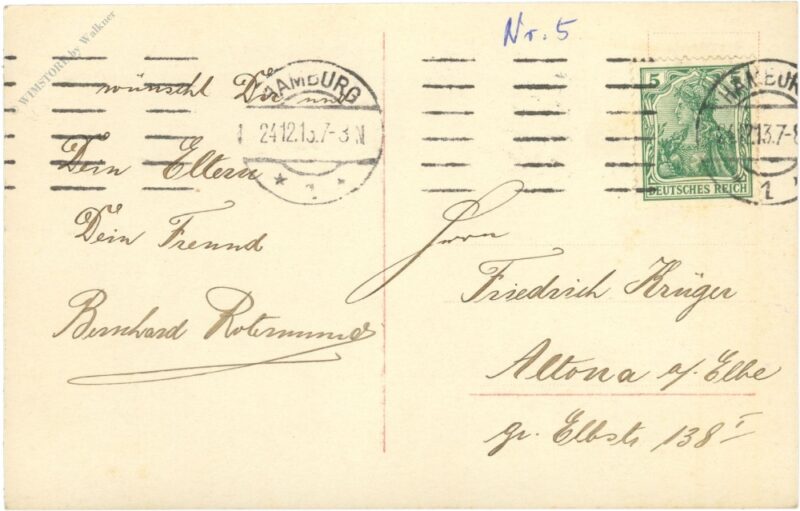 WIMSTORE by Walkner
Nr. 5
wünscht Dir und
Dein Eltern
Dein Freund
Bernhard Rotermund
HAMBURG
24.12.13.7-8 N
* 1 *
5
DEUTSCHES REICH
HAMBUR
24.12.13.7-8
1
Herrn
Friedrich Krüger
Altona a/Elbe
gr. Elbstr 138 I